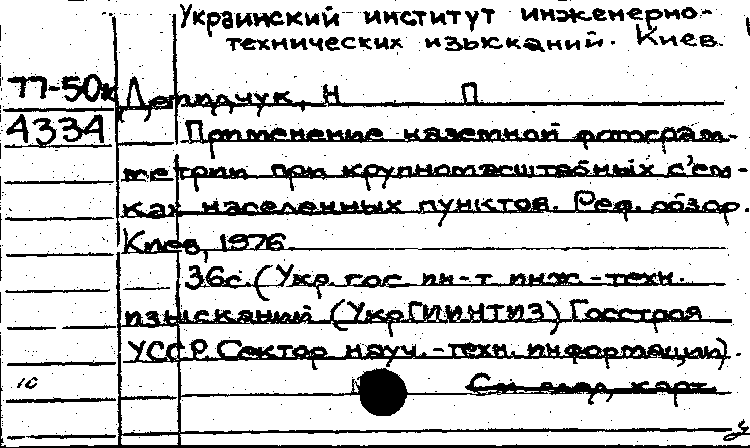 Украинский институт инженерно-
технических изысканий. Киев.
77-50к
Демидчук, Н П
4334
Применение наземной фотограм-
метрии при крупномасштабных с'ем-
ках населенных пунктов. Реф. обзор.
Киев, 1976.
36с. (Укр. гос. ин-т инж.-техн.
изысканий (УкрГИИНТИЗ) Госстроя
УССР. Сектор науч.-техн. информации).
10
См. след. карт.